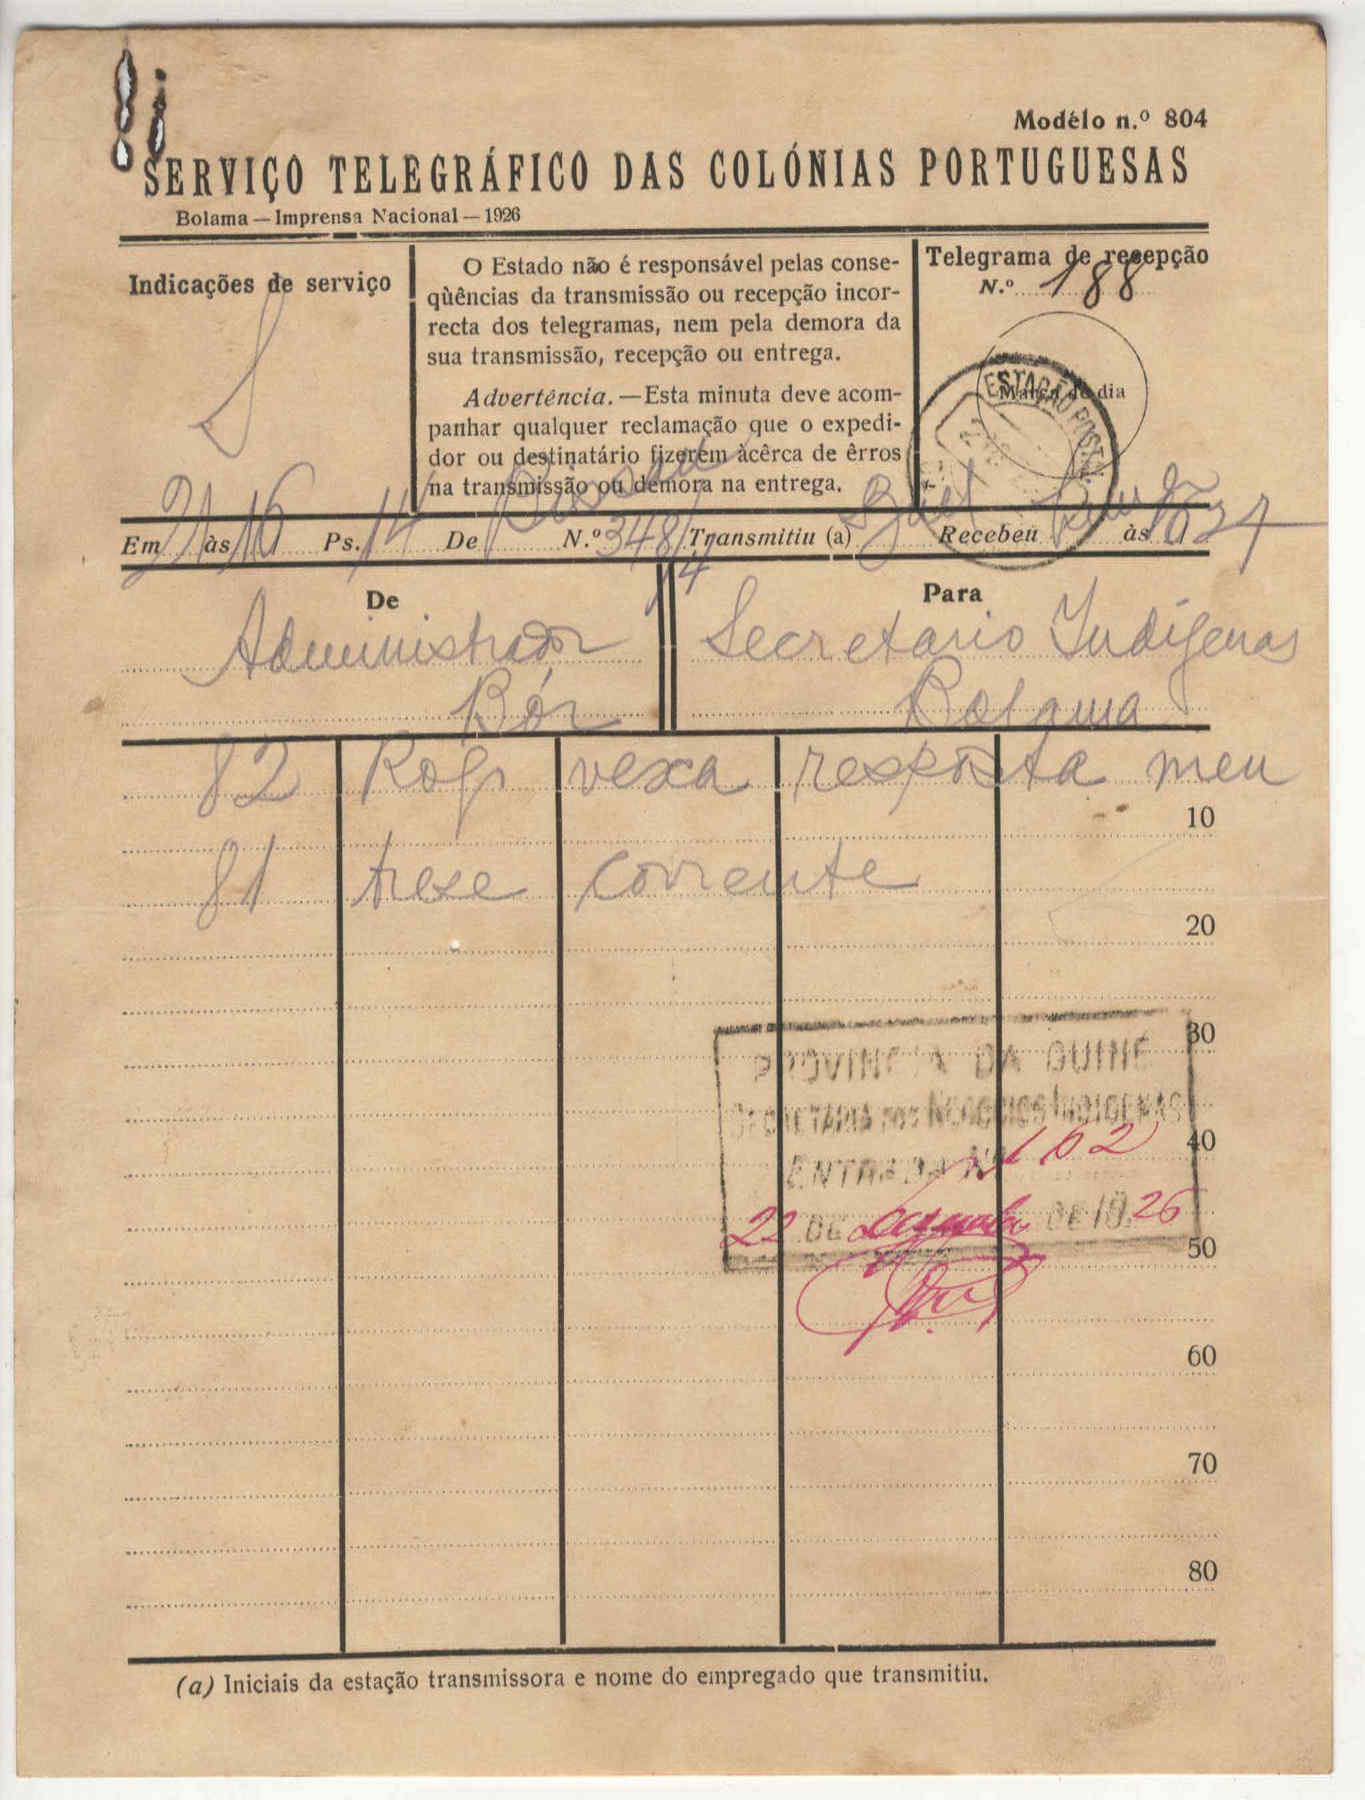 Modélo n.º 804
SERVIÇO TELEGRÁFICO DAS COLÓNIAS PORTUGUESAS
Bolama — Imprensa Nacional — 1926
Indicações de serviço
S
O Estado não é responsável pelas conse-
qùências da transmissão ou recepção incor-
recta dos telegramas, nem pela demora da
sua transmissão, recepção ou entrega.
Advertência. — Esta minuta deve acom-
panhar qualquer reclamação que o expedi-
dor ou destinatário fizerem àcêrca de êrros
na transmissão ou demora na entrega.
Telegrama de recepção
N.º 188
Marca do dia
ESTAÇÃO POSTAL
Em 21 às 16 Ps. 14 De Bissau N.º 348/14 Transmitiu (a) Recebeu às
De
Administrador
Bór
Para
Secretario Indígenas
Bolama
82 Rogo vexa resposta meu
81 treze corrente
10
20
30
40
50
60
70
80
PROVINCIA DA GUINÉ
SECRETARIA DOS NEGOCIOS INDIGENAS
ENTRADA Nº 162
22 DE DE 1926
(a) Iniciais da estação transmissora e nome do empregado que transmitiu.